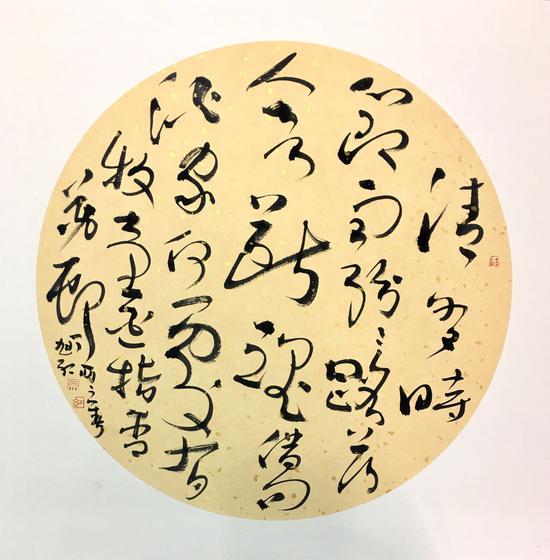 清明時
節雨紛〻路上行
人欲斷魂借問
酒家何處有
牧童遙指杏
花邨